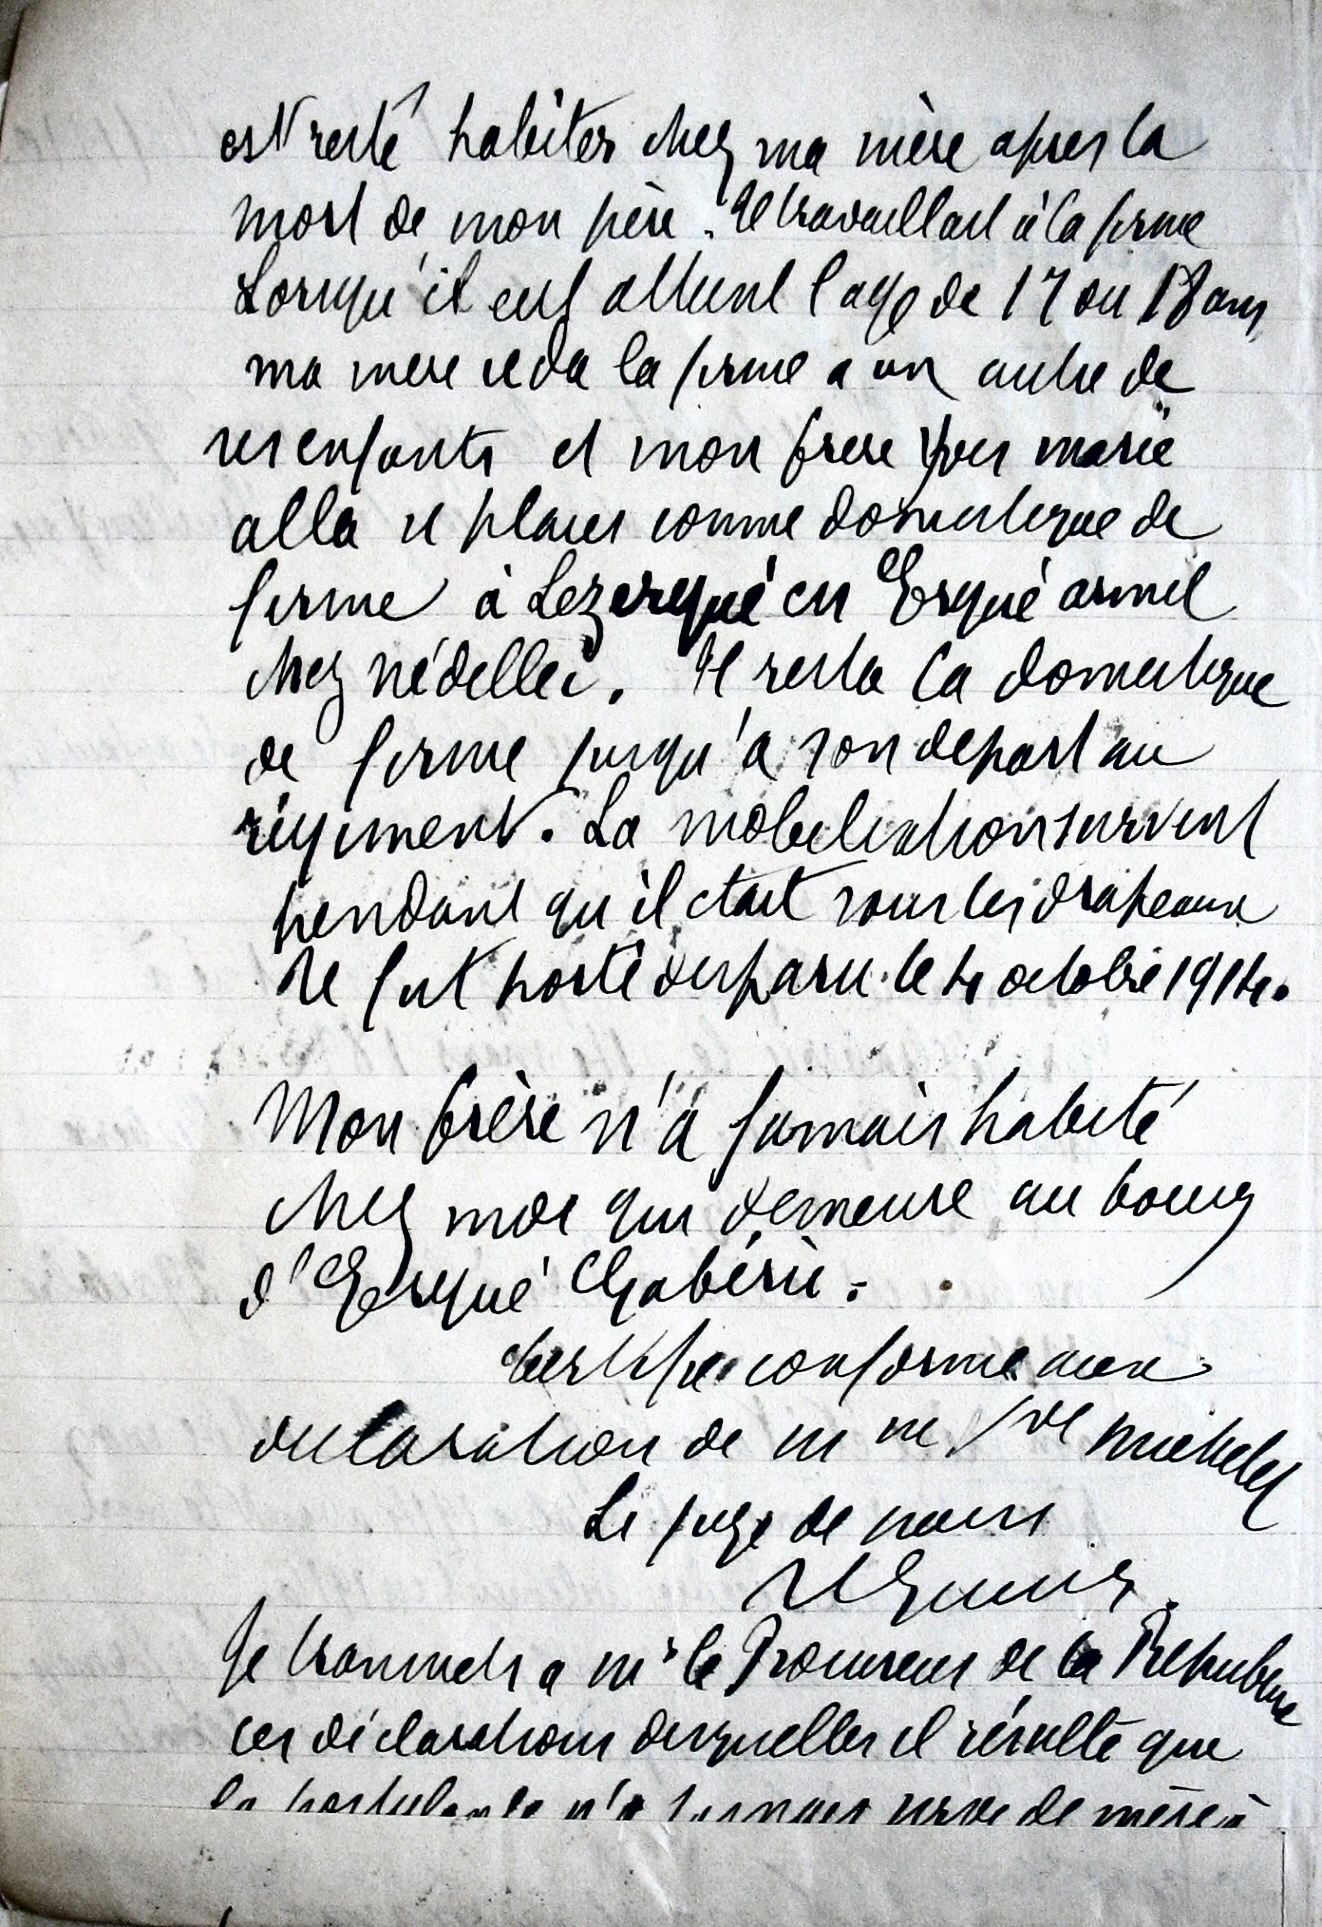 est resté habiter chez ma mère apres la
mort de mon père. Il travaillait à la ferme
Lorsqu'il eut atteint l'age de 17 ou 18 ans,
ma mere ceda la ferme a un autre de
ses enfants et mon frere Yves marie
alla se placer comme domestique de
ferme à Lezergué en Ergué armel
chez Nédellec. Il resta la domestique
de ferme jusqu'a son depart au
régiment. La mobilisation survint
pendant qu'il était sous les drapeaux
Il fut porté disparu le 4 octobre 1914.
Mon frère n'a jamais habité
chez moi qui demeure au bourg
d'Ergué Gabéric.
Certifié conforme aux
declaration de m me Vve michelet
Le juge de paix
Je transmets a mr le Procureur de la Republique
ces déclarations desquelles il résulte que
la postulante n'a jamais servi de mère à